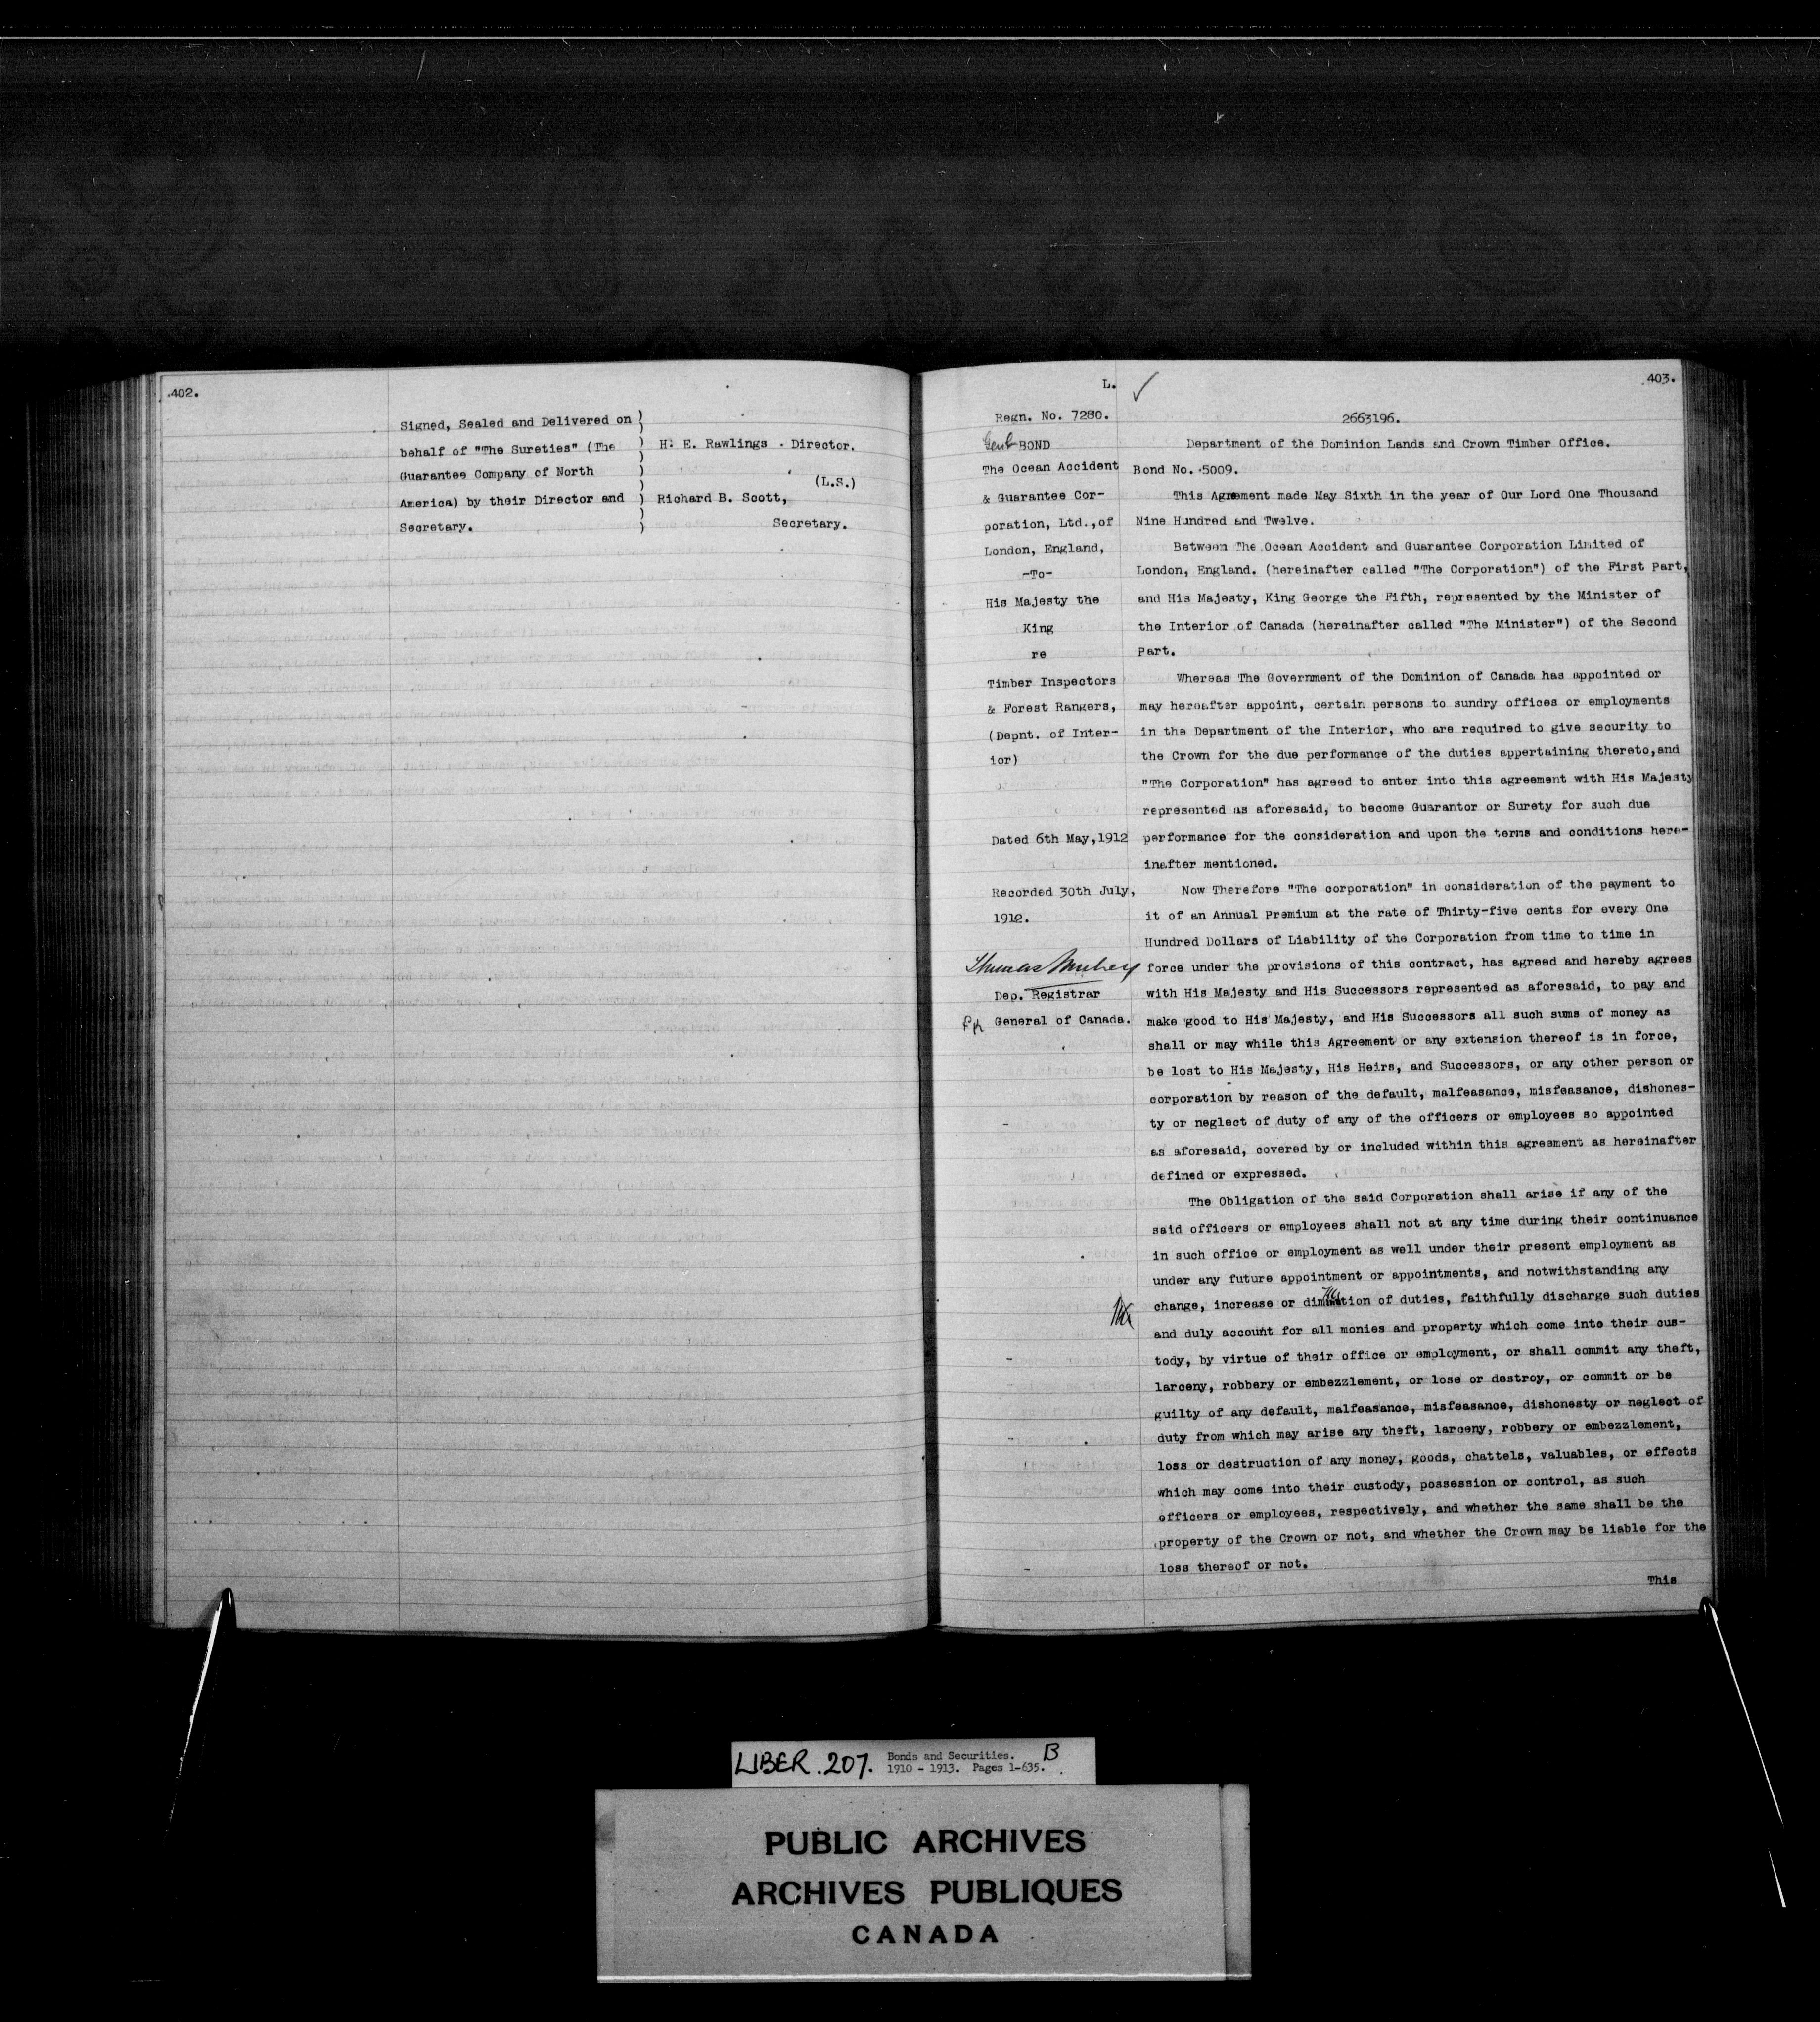 402.
Signed, Sealed and Delivered on )
behalf of "The Sureties" (The ) H. E. Rawlings . Director.
Guarantee Company of North ) (L.S.)
America) by their Director and ) Richard B. Scott,
Secretary. ) Secretary.
L.
403.
Regn. No. 7280.
BOND
The Ocean Accident
& Guarantee Cor-
poration, Ltd., of
London, England,
-To-
His Majesty the
King
re
Timber Inspectors
& Forest Rangers,
(Depnt. of Inter-
ior)
Dated 6th May, 1912
Recorded 30th July,
1912.
Thomas Mulvey
Dep. Registrar
General of Canada.
2663196.
Department of the Dominion Lands and Crown Timber Office.
Bond No. 5009.
This Agreement made May Sixth in the year of Our Lord One Thousand
Nine Hundred and Twelve.
Between The Ocean Accident and Guarantee Corporation Limited of
London, England. (hereinafter called "The Corporation") of the First Part,
and His Majesty, King George the Fifth, represented by the Minister of
the Interior of Canada (hereinafter called "The Minister") of the Second
Part.
Whereas The Government of the Dominion of Canada has appointed or
may hereafter appoint, certain persons to sundry offices or employments
in the Department of the Interior, who are required to give security to
the Crown for the due performance of the duties appertaining thereto, and
"The Corporation" has agreed to enter into this agreement with His Majesty
represented as aforesaid, to become Guarantor or Surety for such due
performance for the consideration and upon the terms and conditions here-
inafter mentioned.
Now Therefore "The corporation" in consideration of the payment to
it of an Annual Premium at the rate of Thirty-five cents for every One
Hundred Dollars of Liability of the Corporation from time to time in
force under the provisions of this contract, has agreed and hereby agrees
with His Majesty and His Successors represented as aforesaid, to pay and
make good to His Majesty, and His Successors all such sums of money as
shall or may while this Agreement or any extension thereof is in force,
be lost to His Majesty, His Heirs, and Successors, or any other person or
corporation by reason of the default, malfeasance, misfeasance, dishones-
ty or neglect of duty of any of the officers or employees so appointed
as aforesaid, covered by or included within this agreement as hereinafter
defined or expressed.
The Obligation of the said Corporation shall arise if any of the
said officers or employees shall not at any time during their continuance
in such office or employment as well under their present employment as
under any future appointment or appointments, and notwithstanding any
change, increase or diminution of duties, faithfully discharge such duties
and duly account for all monies and property which come into their cus-
tody, by virtue of their office or employment, or shall commit any theft,
larceny, robbery or embezzlement, or lose or destroy, or commit or be
guilty of any default, malfeasance, misfeasance, dishonesty or neglect of
duty from which may arise any theft, larceny, robbery or embezzlement,
loss or destruction of any money, goods, chattels, valuables, or effects
which may come into their custody, possession or control, as such
officers or employees, respectively, and whether the same shall be the
property of the Crown or not, and whether the Crown may be liable for the
loss thereof or not.
This
LIBER. 207. Bonds and Securities. B
1910 - 1913. Pages 1-635.
PUBLIC ARCHIVES
ARCHIVES PUBLIQUES
CANADA